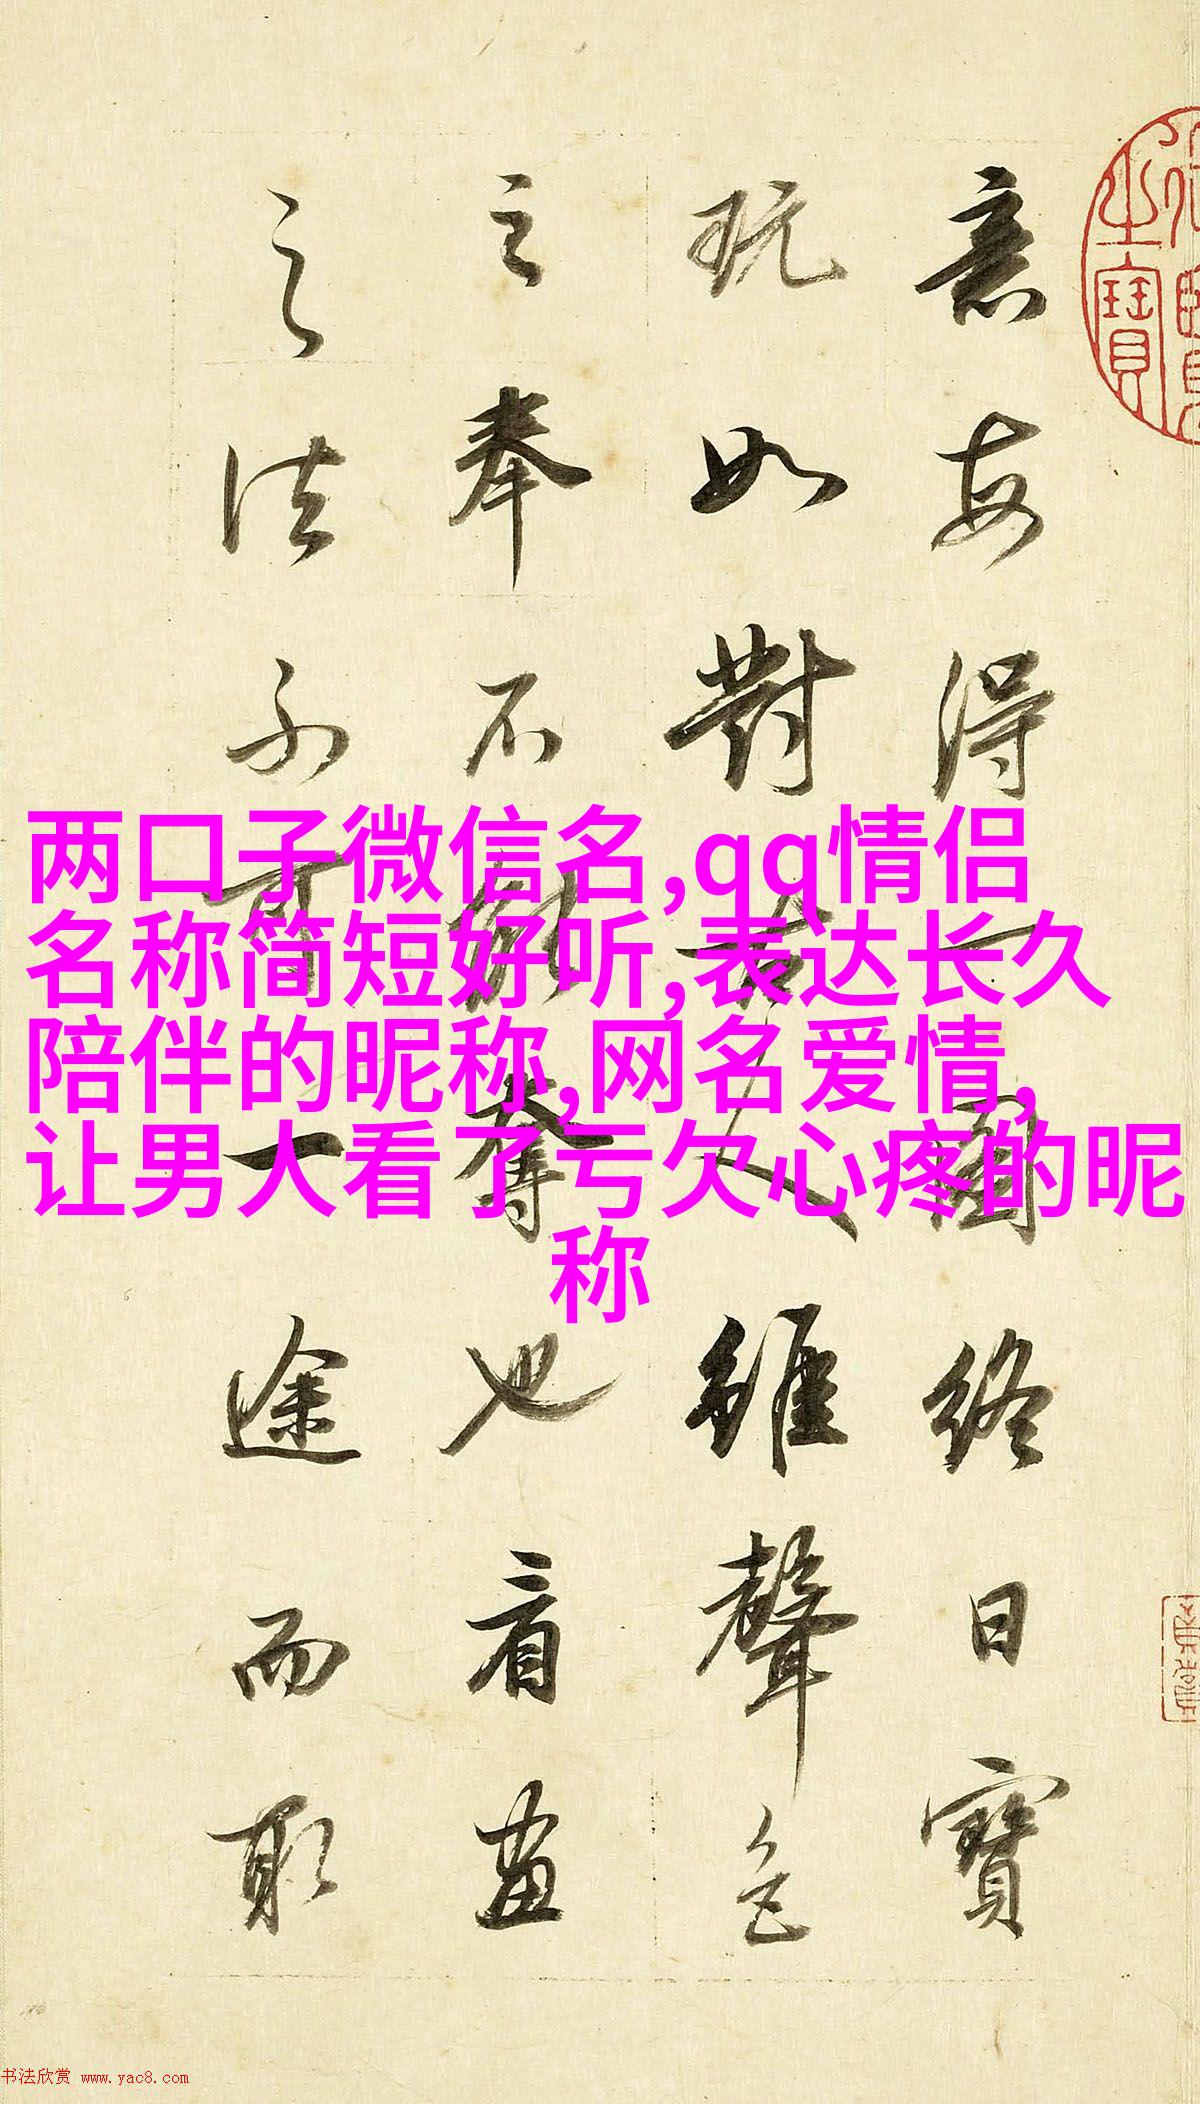 意每得一圖終日寶
玩如對古人雖聲色
之奉不能奪也看畫
之法不可一途而取
两口子微信名,qq情侣
名称简短好听,表达长久
陪伴的昵称,网名爱情,
让男人看了亏欠心疼的昵
称
之寶
书法欣赏 www.yac8.com